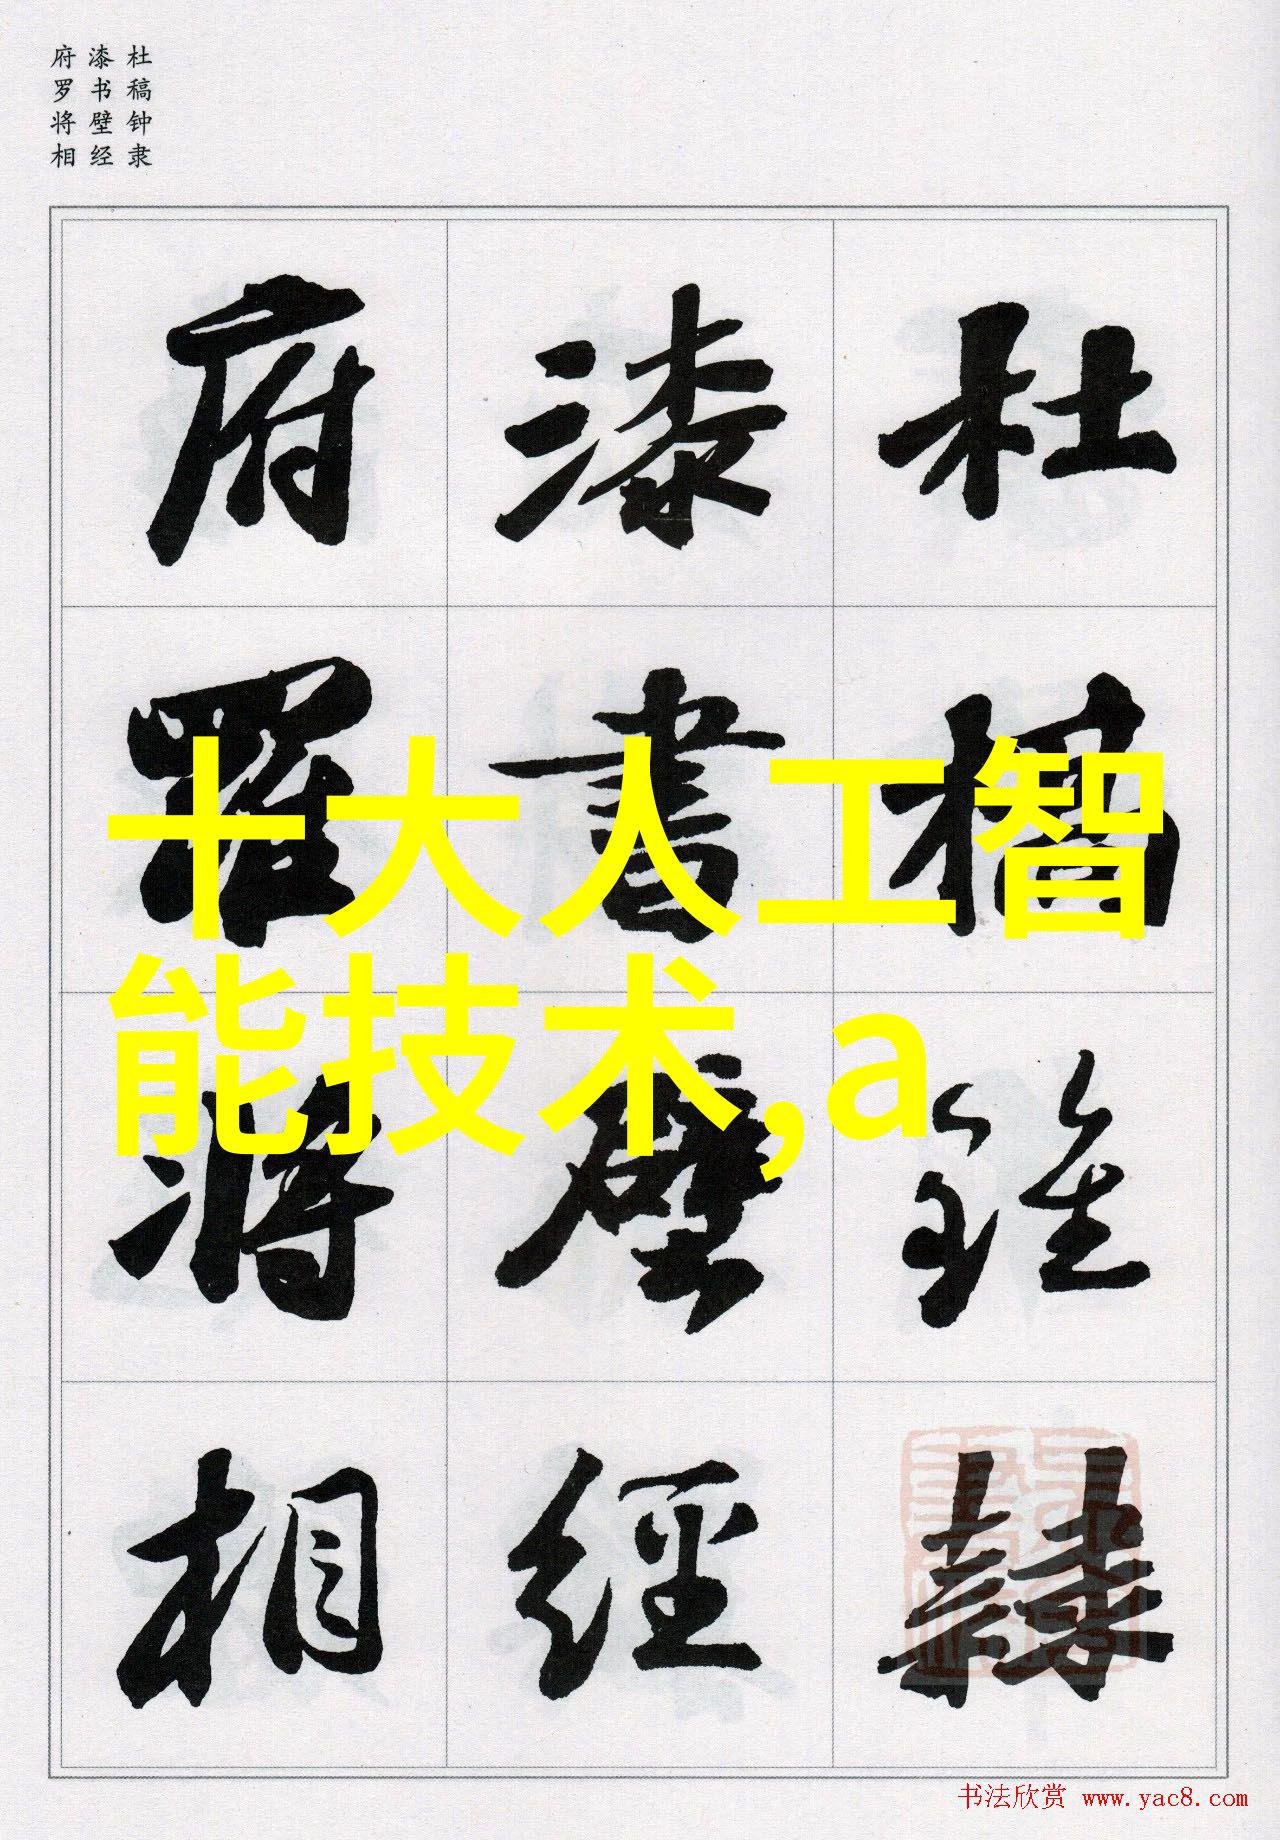 杜稿钟隶
漆书壁经
府罗将相
杜稿鍾隸
漆書壁經
府羅將相
十大人工智
能技术,a
书法欣赏 www.yac8.com